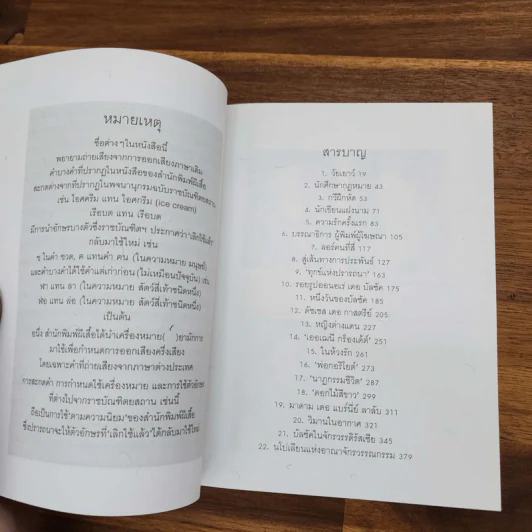 หมายเหตุ
ชื่อต่างๆในหนังสือนี้
พยายามถ่ายเสียงจากการออกเสียงภาษาเดิม
คำบางคำที่ปรากฏในหนังสือของสำนักพิมพ์ผีเสื้อ
สะกดต่างจากที่ปรากฏในพจนานุกรมฉบับราชบัณฑิตยสถาน
เช่น ไอศครีม แทน ไอศกรีม (ice cream)
เรือบต แทน เรือบด
มีการนำอักษรบางตัวซึ่งราชบัณฑิตฯ ประกาศว่า'เลิกใช้แล้ว'
กลับมาใช้ใหม่ เช่น
ฃ ในคำ ฃวด, ฅ แทนคำ คน (ในความหมาย มนุษย์)
และคำบางคำได้ใช้คำแต่เก่าก่อน (ไม่เหมือนปัจจุบัน) เช่น
ฬา แทน ลา (ในความหมาย สัตว์สี่เท้าชนิดหนึ่ง)
ฬ่อ แทน ล่อ (ในความหมาย สัตว์สี่เท้าชนิดหนึ่ง)
เป็นต้น
อนึ่ง สำนักพิมพ์ผีเสื้อได้นำเครื่องหมาย( )ยามักการ
มาใช้เพื่อกำหนดการออกเสียงครึ่งเสียง
โดยเฉพาะคำที่ถ่ายเสียงจากภาษาต่างประเทศ
การสะกดคำ การกำหนดใช้เครื่องหมาย และการใช้ตัวอักษร
ที่ต่างไปจากราชบัณฑิตยสถาน เช่นนี้
ถือเป็นการใช้'ตามความนิยม'ของสำนักพิมพ์ผีเสื้อ
ซึ่งปรารถนาจะให้ตัวอักษรที่'เลิกใช้แล้ว'ได้กลับมาใช้ใหม่
สารบาญ
1. วัยเยาว์ 19
2. นักศึกษากฎหมาย 43
3. กวีฝึกหัด 53
4. นักเขียนแฝงนาม 71
5. ความรักครั้งแรก 83
6. บรรณาธิการ ผู้พิมพ์ผู้โฆษณา 105
7. ลอร์คนที่สี่ 117
8. สู่เส้นทางการประพันธ์ 127
9. 'ทุกข์แห่งปรารถนา' 163
10. รอยรูปออนเร่ เดอ บัลซัค 175
11. หนึ่งวันของบัลซัค 185
12. ดัชเชส เดอ กาสตรีย์ 205
13. หญิงต่างแดน 227
14. 'เออเฌนี กร็องเด้ต์' 243
15. ในห้วงรัก 261
16. 'พ่อกอริโยต์' 273
17. 'นาฏกรรมชีวิต' 287
18. 'ดอกไม้สีขาว' 299
19. มาดาม เดอ แบร์นีย์ ลาลับ 311
20. วิมานในอากาศ 321
21. บัลซัคในจักรวรรดิรัสเซีย 345
22. นโปเลียนแห่งอาณาจักรวรรณกรรม 379